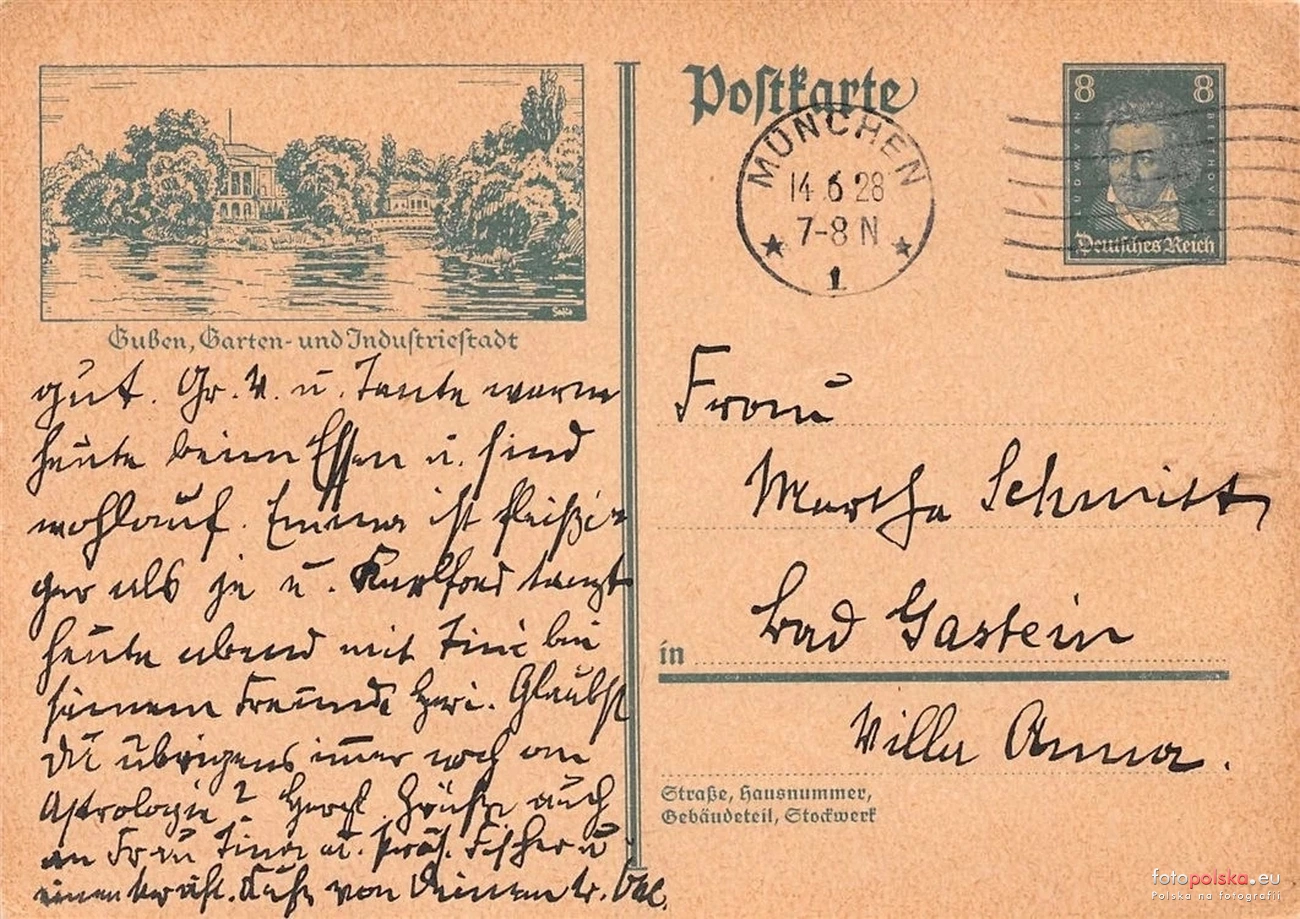 Postkarte
8 8
LUDWIG VAN BEETHOVEN
Deutsches Reich
MÜNCHEN
14.6.28
7-8 N
1
Guben, Garten- und Industriestadt
gut. Gr. V. u. Tante waren
heute beim Essen u. sind
wohlauf. Emma ist fleißi-
ger als je u. tanzt
heute abend mit Tini bei
seinem Freunde Heri. Glaubst
Du übrigens immer noch an
Astrologie? Herzl. Grüße auch
an Frau Tina u. Präs. Fischer u
einen kräft. Kuß von Deinem tr.
Frau
Martha Schmitt
in Bad Gastein
Villa Anna.
Straße, Hausnummer,
Gebäudeteil, Stockwerk
fotopolska.eu
Polska na fotografii